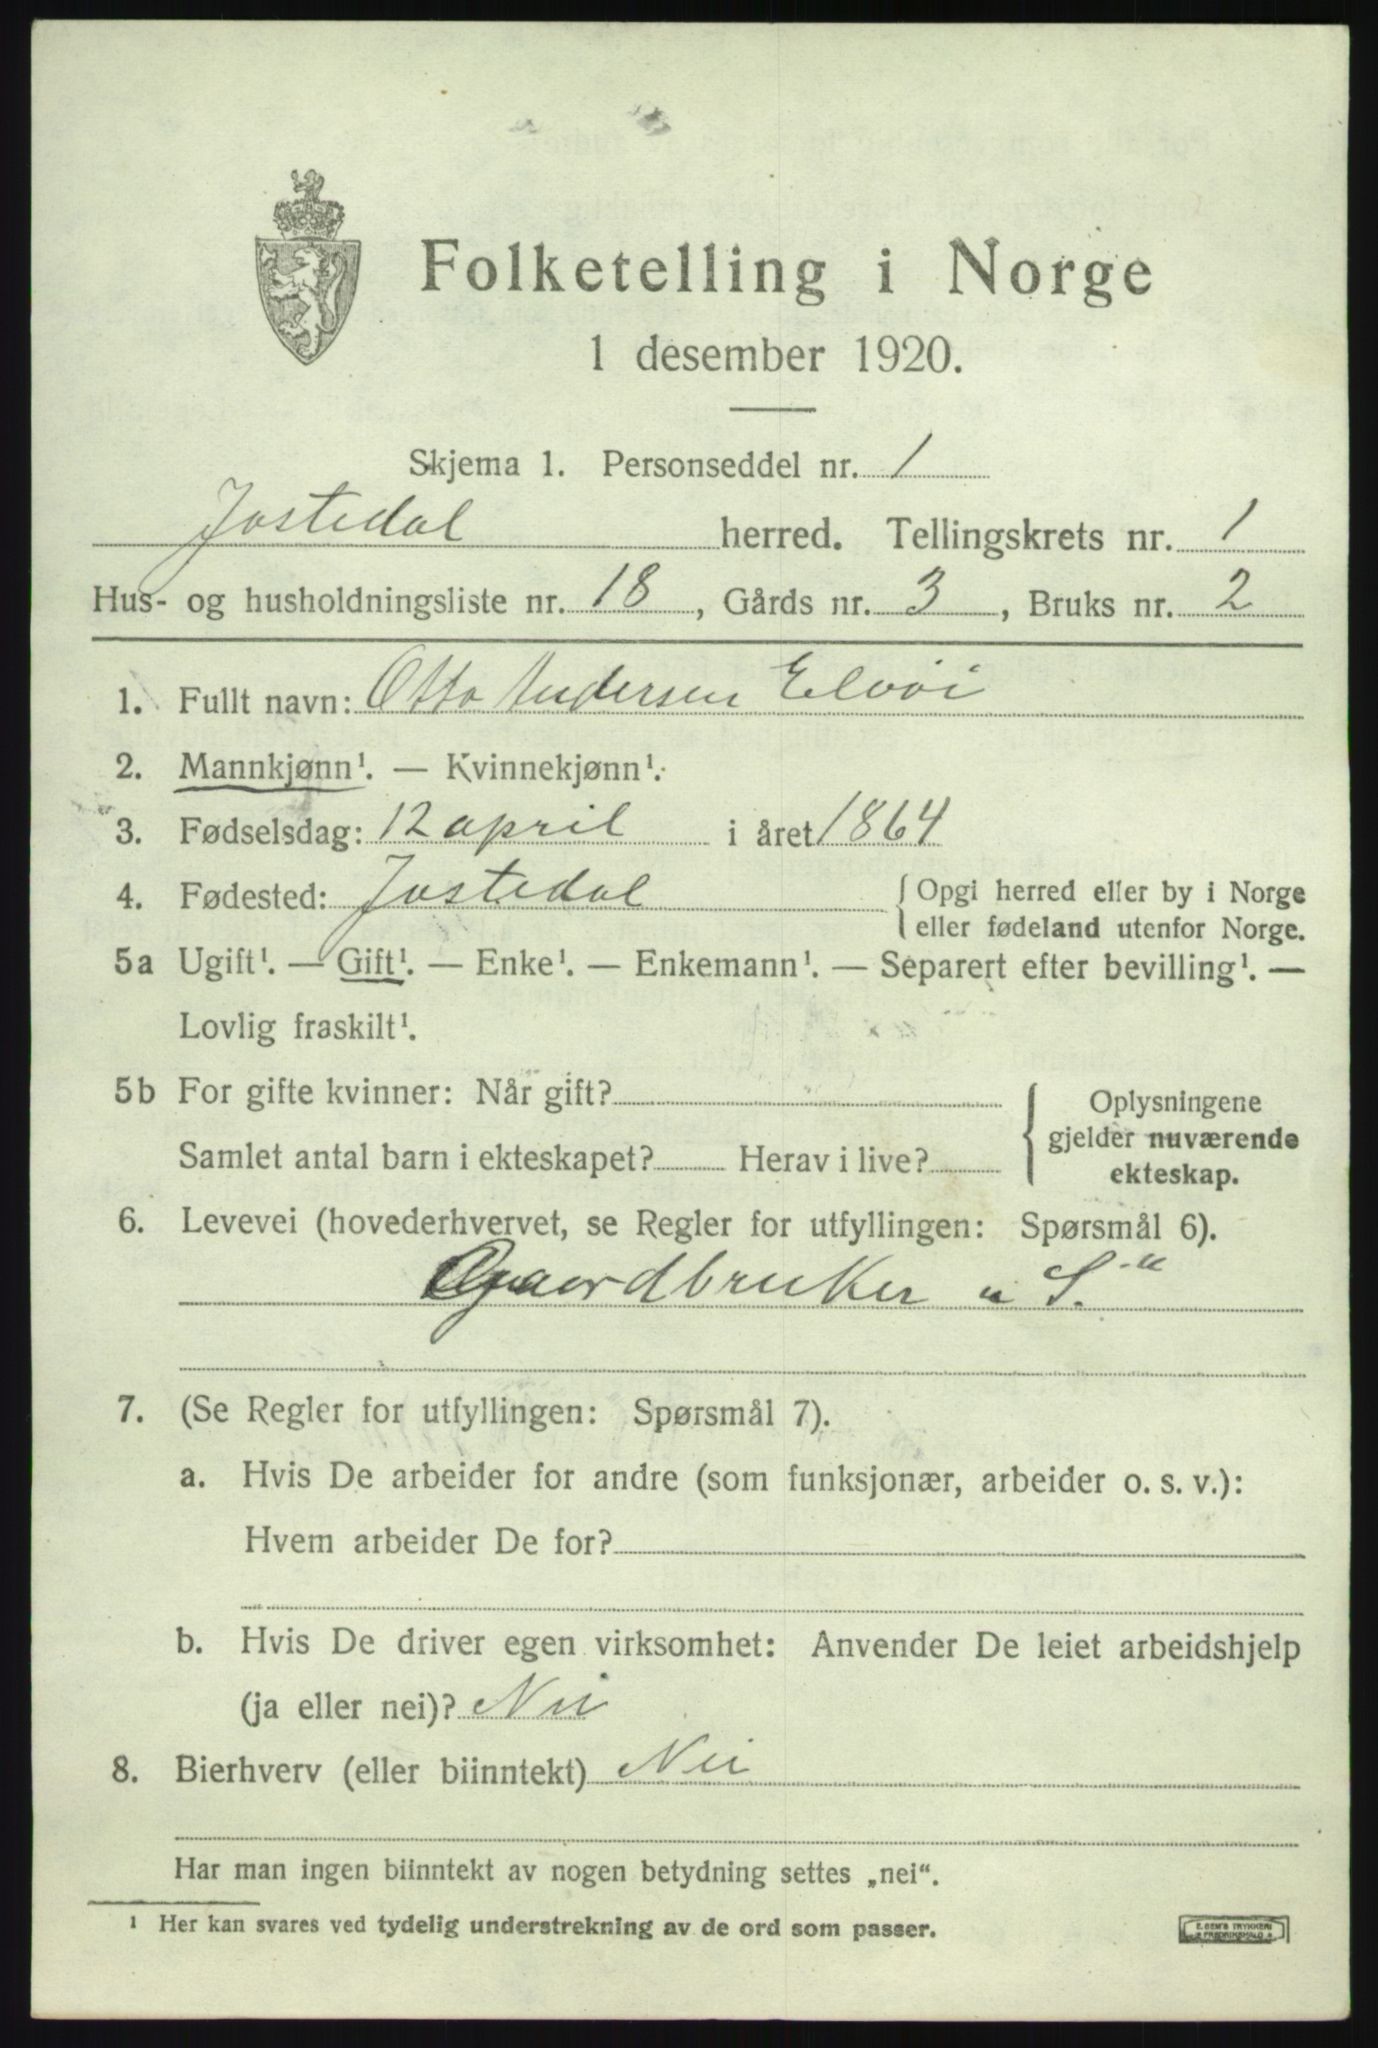 Folketelling i Norge
1 desember 1920.
Skjema 1. Personseddel nr. 1
Jostedal herred. Tellingskrets nr. 1
Hus- og husholdningsliste nr. 18, Gårds nr. 3, Bruks nr. 2
1. Fullt navn: Otto Andersen Elvöi
2. Mannkjønn¹. — Kvinnekjønn¹.
3. Fødselsdag: 12 april i året 1864
4. Fødested: Jostedal { Opgi herred eller by i Norge
eller fødeland utenfor Norge.
5a Ugift¹. — Gift¹. — Enke¹. — Enkemann¹. — Separert efter bevilling¹. —
Lovlig fraskilt¹.
5b For gifte kvinner: Når gift? { Oplysningene
gjelder nuværende
Samlet antal barn i ekteskapet? Herav i live?
ekteskap.
6. Levevei (hovederhvervet, se Regler for utfyllingen: Spørsmål 6).
Gaardbruker " S."
7. (Se Regler for utfyllingen: Spørsmål 7).
a. Hvis De arbeider for andre (som funksjonær, arbeider o. s. v.):
Hvem arbeider De for?
b. Hvis De driver egen virksomhet: Anvender De leiet arbeidshjelp
(ja eller nei)? Nei
8. Bierhverv (eller biinntekt) Nei
Har man ingen biinntekt av nogen betydning settes „nei“.
¹ Her kan svares ved tydelig understrekning av de ord som passer.
E. SEM'S TRYKKERI
FREDRIKSHALD